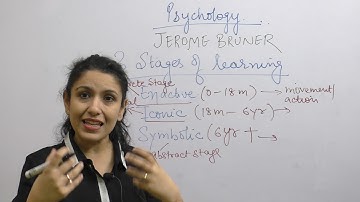 Psychology
JEROME BRUNER
Stages of learning
Stage
Enactive (0-18m) → movement/
action
Iconic (18m - 6yr) →
Symbolic (6yr + →
abstract stage